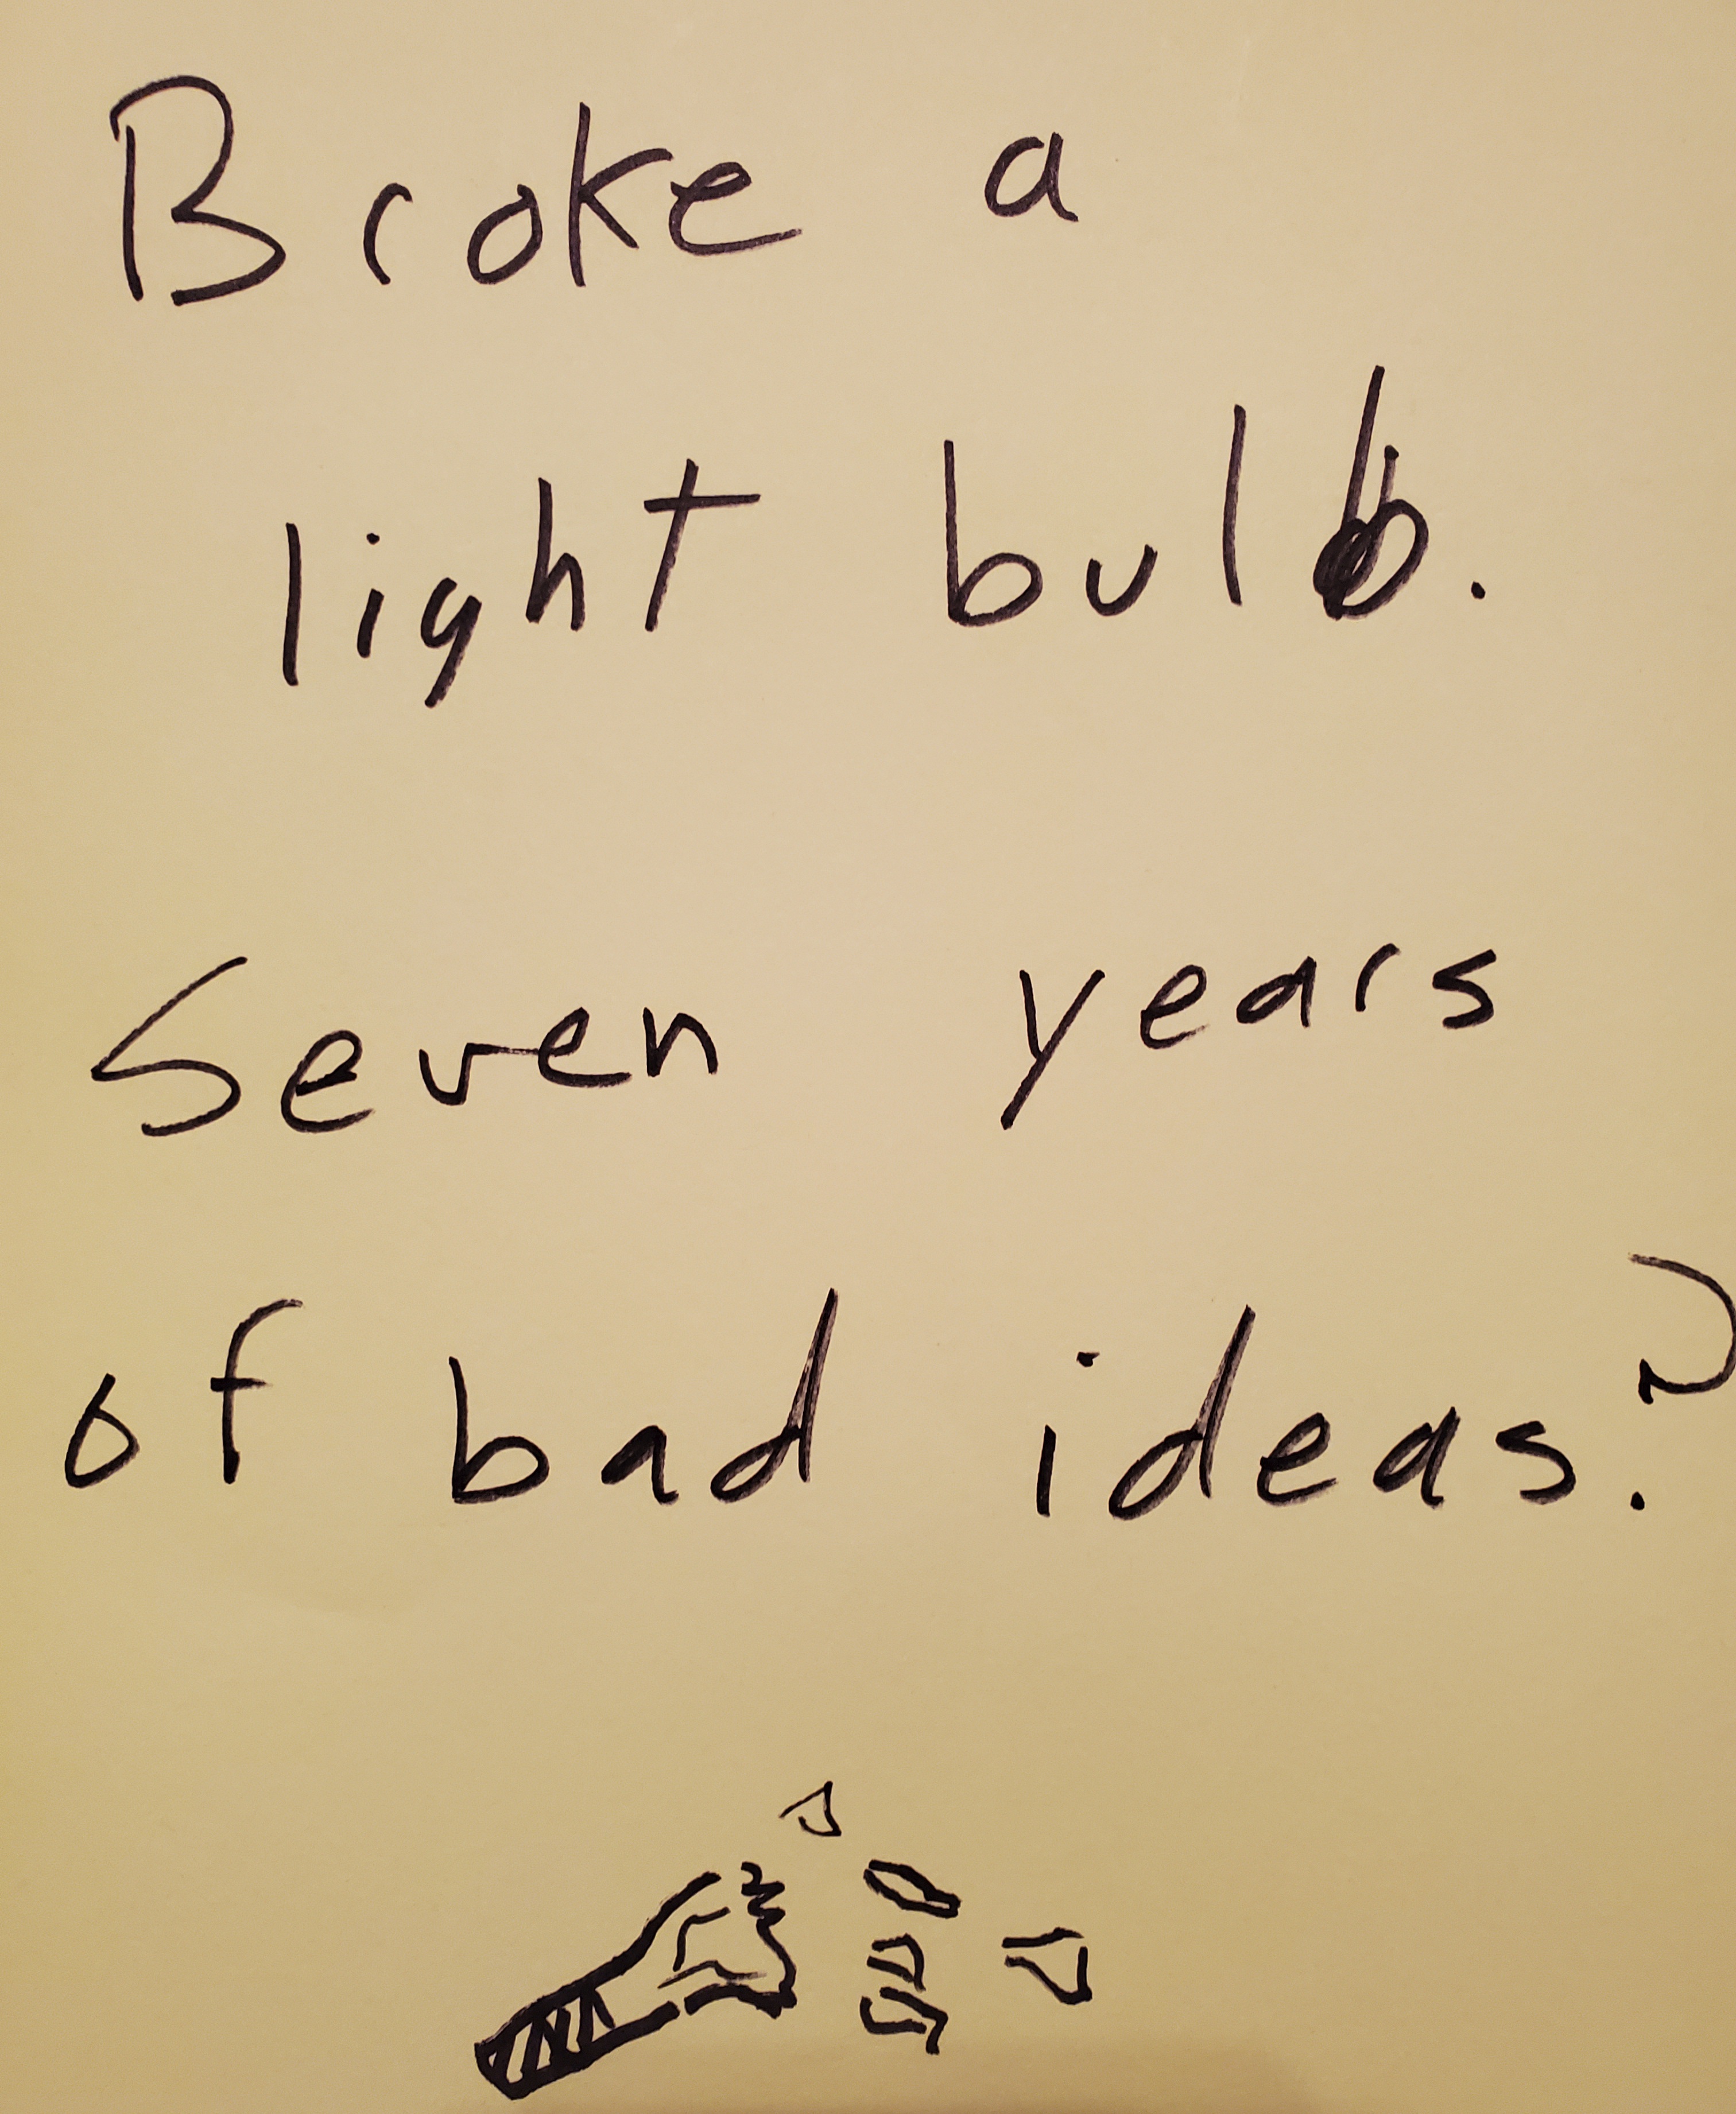 Broke a
light bulb.
Seven years
of bad ideas?